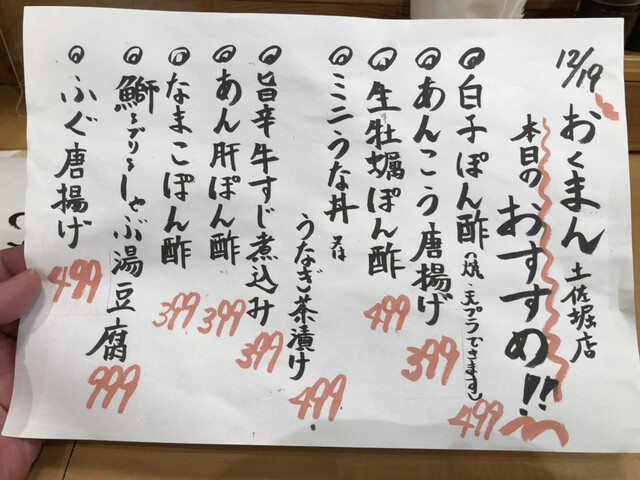 12/19
おくまん 土佐堀店
本日のおすすめ!!
白子ぽん酢(焼・天プラできます) 499
あんこう唐揚げ 399
生牡蠣ぽん酢 499
ミニうな丼 又は
うなぎ茶漬け 499
旨辛牛すじ煮込み 399
あん肝ぽん酢 399
なまこぽん酢 399
鰤〜ブリ〜しゃぶ湯豆腐 999
ふぐ唐揚げ 499